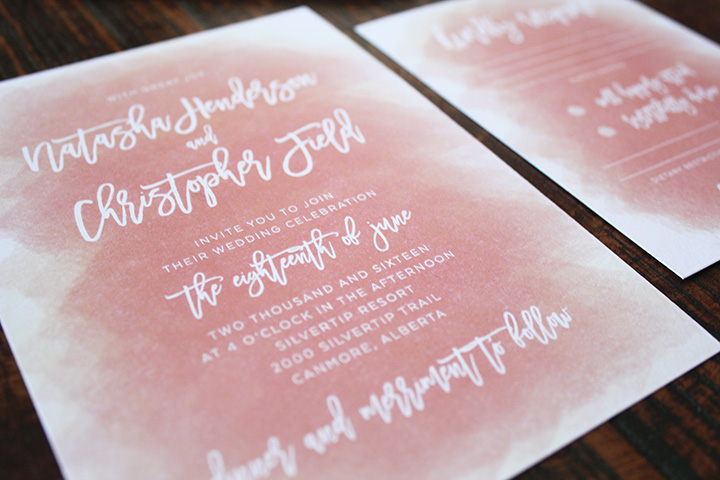 WITH GREAT JOY
Natasha Henderson
and
Christopher Field
INVITE YOU TO JOIN
THEIR WEDDING CELEBRATION
the eighteenth of june
TWO THOUSAND AND SIXTEEN
AT 4 O'CLOCK IN THE AFTERNOON
SILVERTIP RESORT
2000 SILVERTIP TRAIL
CANMORE, ALBERTA
dinner and merriment to follow
kindly respond
will happily attend
regretfully decline
DIETARY